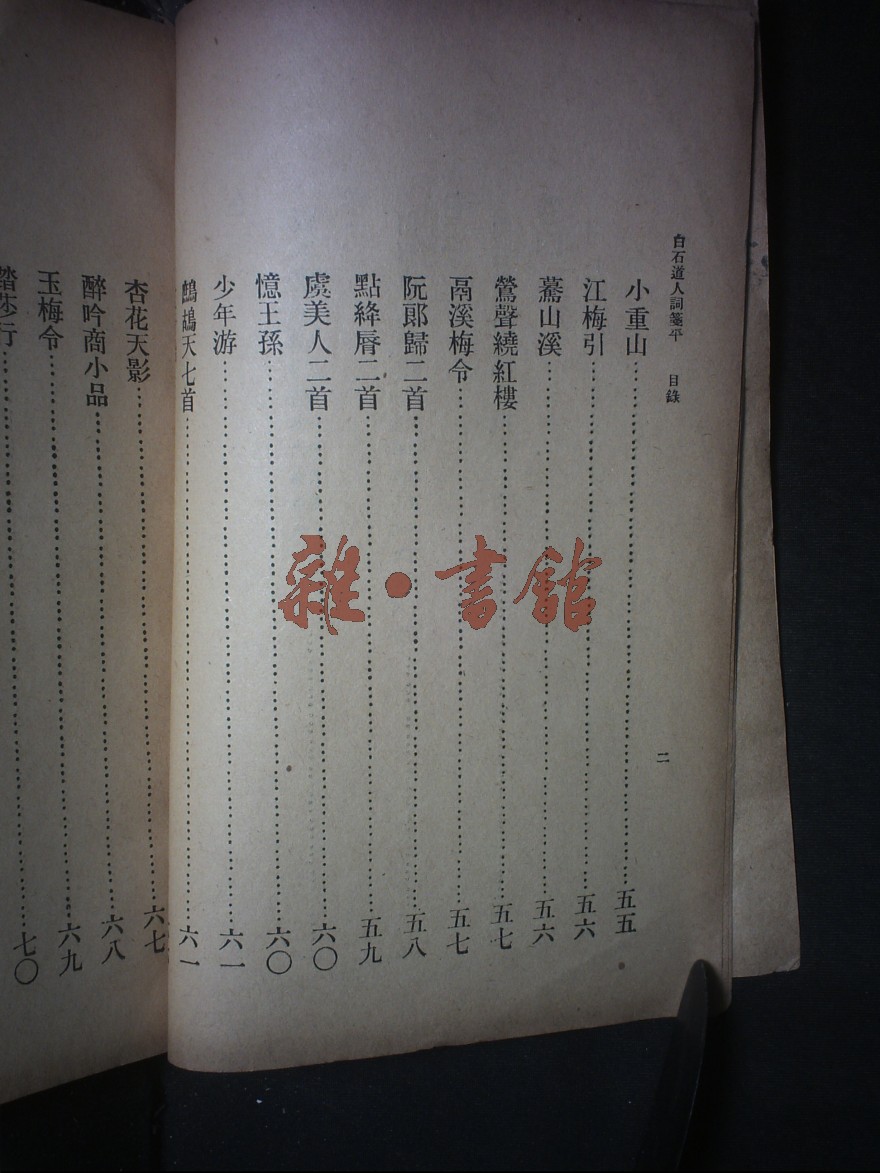 白石道人詞箋平　目錄
二
小重山……五五
江梅引……五六
驀山溪……五六
鶯聲繞紅樓……五七
鬲溪梅令……五七
阮郎歸二首……五八
點絳脣二首……五九
虞美人二首……六〇
憶王孫……六〇
少年游……六一
鷓鴣天七首……六一
杏花天影……六七
醉吟商小品……六八
玉梅令……六九
踏莎行……七〇
雜·書館